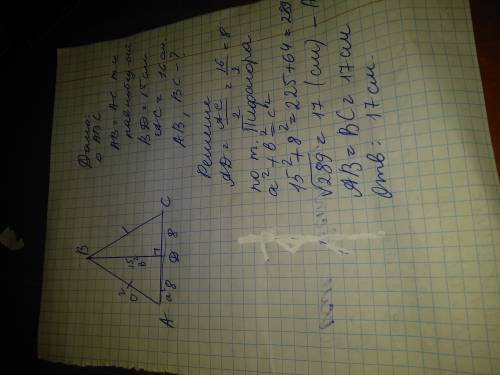 Дано:
△ ABC
AB = AC т.к
равнобед-ный
BD = 15 см
AC = 16 см.
AB, BC - ?
Решение
AD = AC/2 = 16/2 = 8
по т. Пифагора
a² + b² = c²
15² + 8² = 225 + 64 = 289
√289 = 17 (см) -
AB = BC = 17 см
Отв: 17 см.
B
15
в
A
a
8
D
8
C